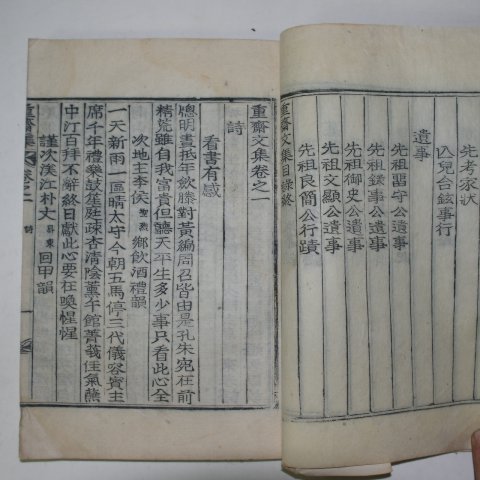 先考家狀
仏兒台鉉事行
遺事
先祖留守公遺事
先祖錄事公遺事
先祖御史公遺事
先祖文顯公遺事
先祖良簡公行蹟
重齋文集目錄終
重齋文集卷之一
詩
看書有感
聰明晝抵年飲藤對黃編周召皆由是孔朱宛在前
精荒雖自我富貴但聽天平生多少事只看此心全
次地主李侯聖烈鄉飲酒禮韻
一天新雨一區晴太守今朝五馬停三代儀容賓主
席千年禮樂鼓笙庭疎杏清陰薰午館菁莪佳氣藹
中汀百拜不辭終日獻此心要在喚惺惺
謹次渼江朴丈昇東回甲韻
重齋集
卷之一
詩
一